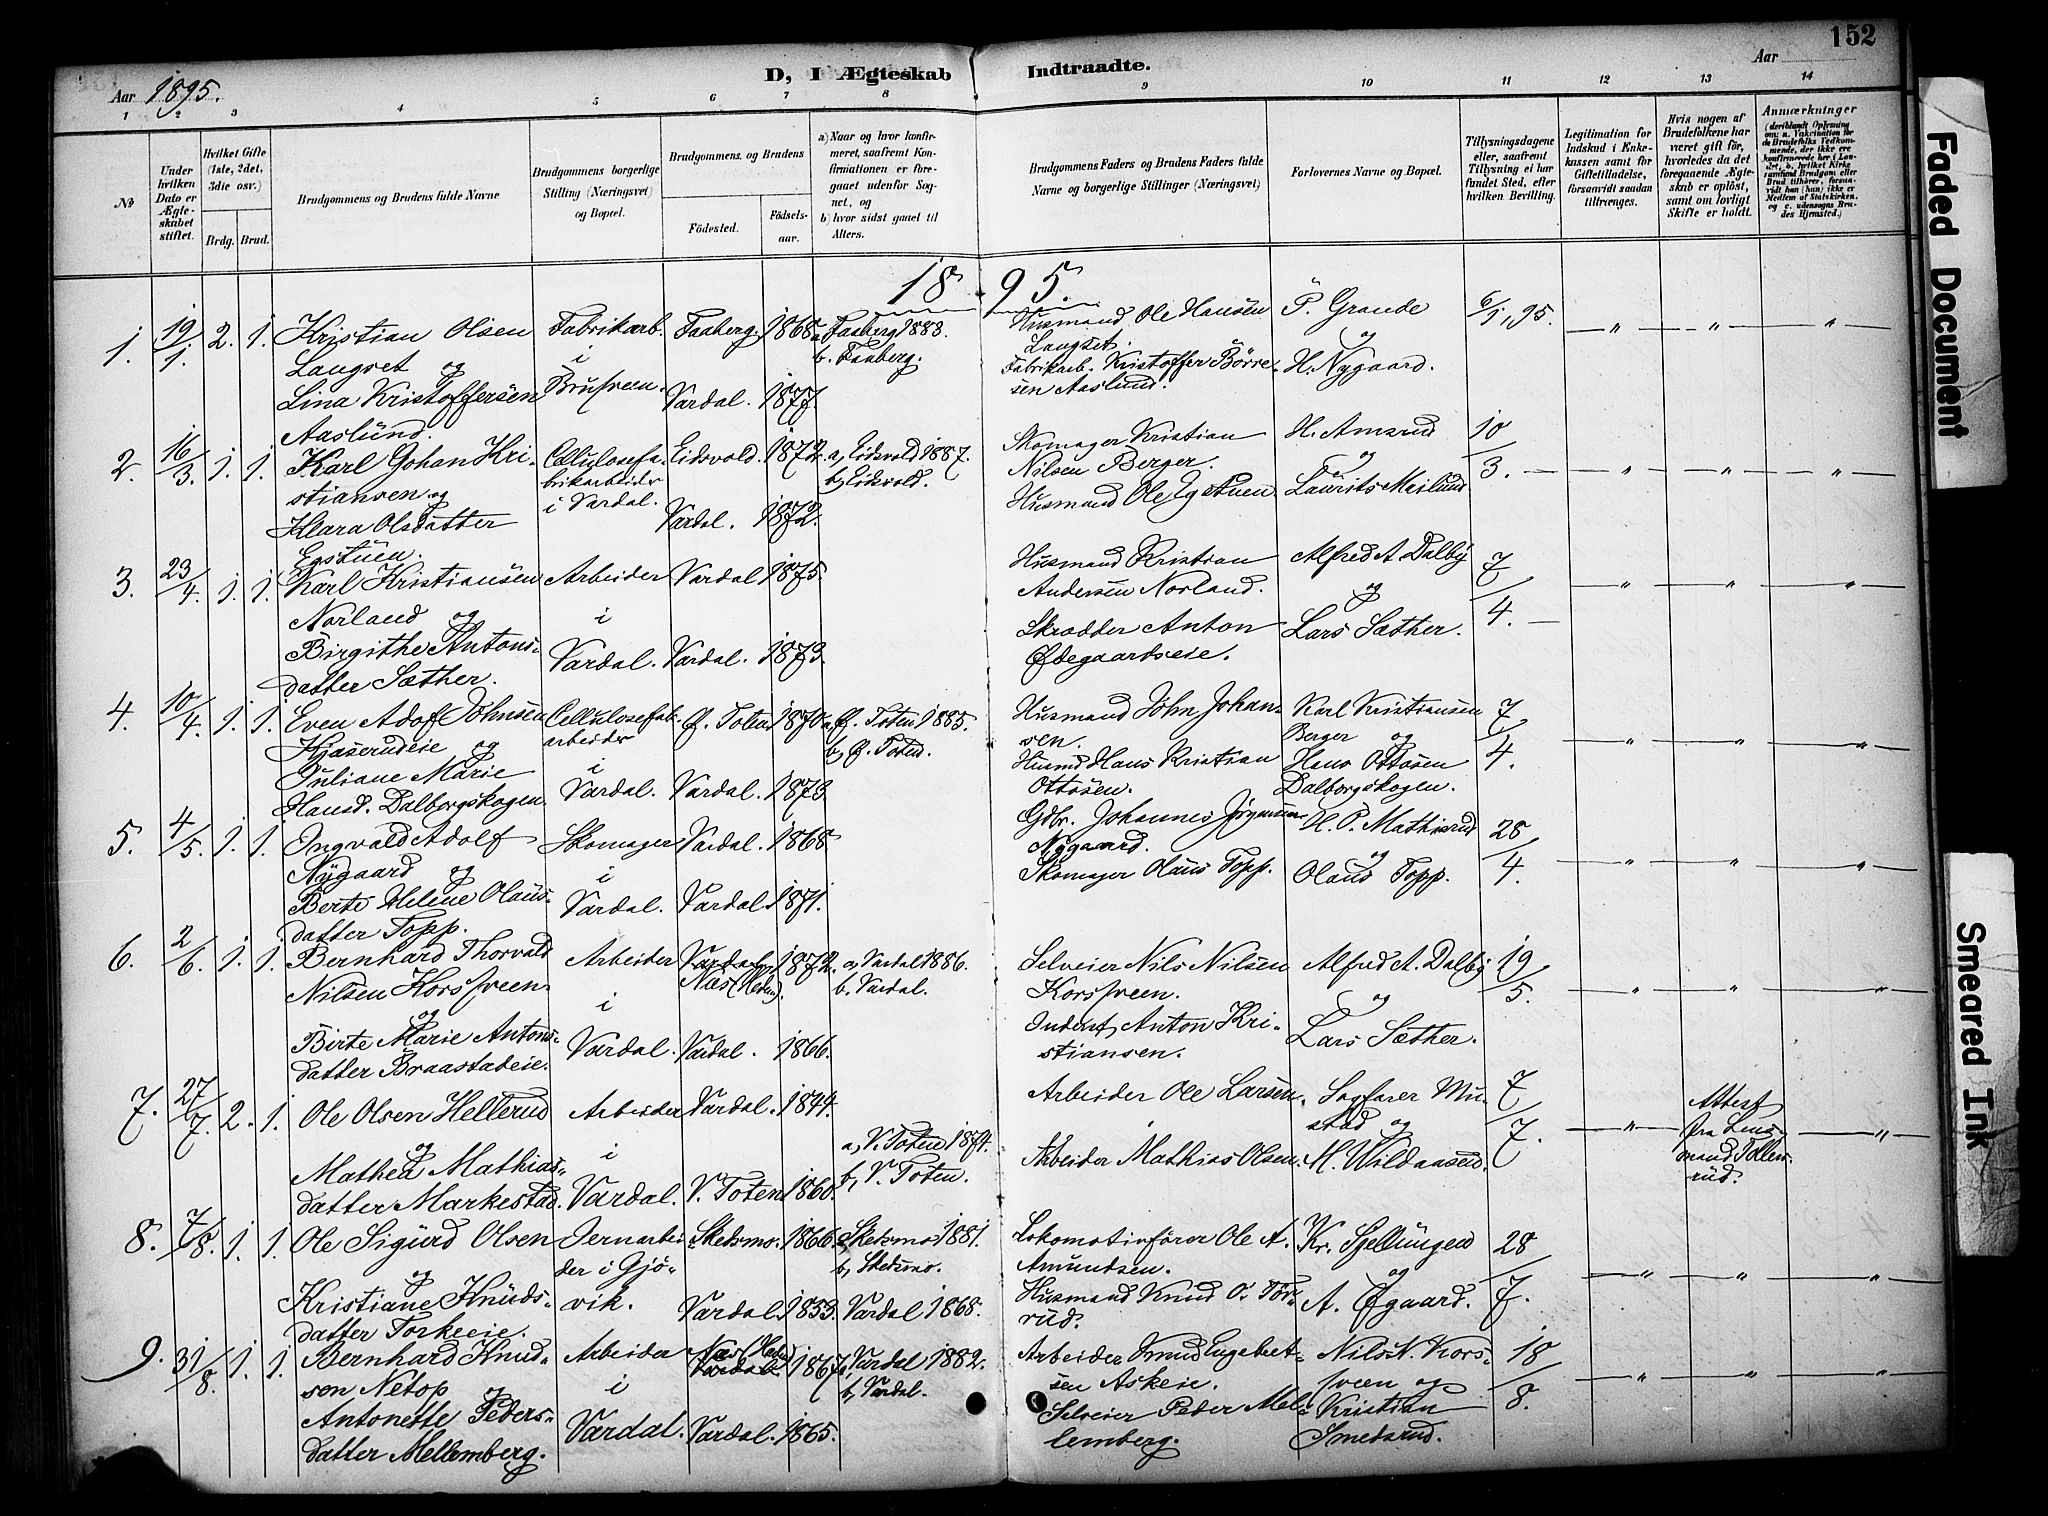 152
D, I Ægteskab Indtraadte.
Aar 1895.
Aar
1 2 3 4 5 6 7 8 9 10 11 12 13 14
No
Under hvilken Dato er Ægteskabet stiftet.
Hvilket Gifte (1ste, 2det, 3die osv.)
Brdg. Brud.
Brudgommens og Brudens fulde Navne
Brudgommens borgerlige Stilling (Næringsvei) og Bopæl.
Brudgommens og Brudens
Fødested.
Fødselsaar.
a) Naar og hvor konfirmeret, saafremt Konfirmationen er foregaaet udenfor Sognet, og
b) hvor sidst gaaet til Alters.
Brudgommens Faders og Brudens Faders fulde Navne og borgerlige Stillinger (Næringsvei)
Forlovernes Navne og Bopæl.
Tillysningsdagene eller, saafremt Tillysning ei har fundet Sted, efter hvilken Bevilling.
Legitimation for Indskud i Enkekassen samt for Giftetilladelse, forsaavidt saadan tiltrænges.
Hvis nogen af Brudefolkene har været gift før, hvorledes da det foregaaende Ægteskab er opløst, samt om lovligt Skifte er holdt.
Anmærkninger
1895.
1. 19/1. 2. 1. Kristian Olsen Langset og Lina Kristoffersen Aaslund.
Fabrikarb. i Brufveen.
Faaberg. 1868. a. Faaberg 1883. b. Faaberg.
Vardal. 1877.
Husmand Ole Hansen Langset.
Fabrikarb. Kristoffer Børresen Aaslund.
P. Grande og H. Nygaard.
6/1, 95. — " — " — "
2. 16/3. 1. 1. Karl Johan Kristiansen og Klara Olsdatter Egstuen.
Cellulosefabrikarbeider i Vardal.
Eidsvold. 1872. a, Eidsvold 1887. b, Eidsvold.
Vardal. 1872.
Skomager Kristian Nilsen Berger.
Husmand Ole Egstuen.
H. Amsrud og Laurits Meilund
10/3. — " — " — "
3. 23/4. 1. 1. Karl Kristiansen Norland og Birgithe Antonsdatter Sæther.
Arbeider i Vardal.
Vardal 1875.
Vardal. 1873.
Husmand Kristian Andersen Norland.
Skrædder Anton Ødegaardseie.
Alfred A. Dalby og Lars Sæther.
7/4. — " — " — "
4. 10/4. 1. 1. Even Adolf Johnsen Hjaserudeie og Juliane Marie Hansd. Dalborgskogen.
Cellulosefab. arbeider i Vardal.
Ø. Toten 1870. a, Ø. Toten 1885. b, Ø. Toten.
Vardal. 1873.
Husmand John Johansen.
Husmd Hans Kristian Ottosen.
Karl Kristiansen Berger og Hans Ottosen Dalborgskogen.
7/4. — " — " — "
5. 4/5. 1. 1. Ingvald Adolf Nygaard og Berte Helene Olausdatter Topp.
Skomager i Vardal.
Vardal. 1868
Vardal 1871.
Gdbr. Johannes Jørgensen Nygaard.
Skomager Olaus Topp.
H. P. Mathisrud og Olaus Topp.
28/4. — " — " — "
6. 2/6. 1. 1. Bernhard Thorvald Nilsen Korsfveen og Birte Marie Antonsdatter Braastadeie.
Arbeider i Vardal.
Vardal Næs (Hedm). 1872. a, Vardal 1886. b. Vardal.
Vardal. 1866.
Selveier Nils Nilsen Korsfveen.
Inderst Anton Kristiansen.
Alfred A. Dalby og Lars Sæther.
19/5. — " — " — "
7. 27/7. 2. 1. Ole Olsen Hellerud og Mathea Mathiasdatter Markestad.
Arbeider i Vardal.
Vardal. 1844.
V. Toten 1860. a, V. Toten 1874. b, V. Toten.
Arbeider Ole Larsen.
Arbeider Mathias Olsen.
Sagfører Mustad og M. Wildaasen.
7/7. — " — Attest fra Lensmand Tollerud. — "
8. 7/8. 1. 1. Ole Sigurd Olsen og Kristiane Knudsdatter Torkeeie.
Jernarbeider i Gjøvik.
Skedsmo. 1866. a, Skedsmo 1881. b, Skedsmo.
Vardal 1853. Vardal 1868.
Lokomotivfører Ole A. Amundsen.
Husmand Knud O. Torrud.
Kr. Gjellungen og A. Øgaard.
28/7. — " — " — "
9. 31/8. 1. 1. Bernhard Knudsen Netop og Antonette Pedersdatter Mellemberg.
Arbeider i Vardal.
Næs (Hedm) Vardal. 1867. a, Vardal 1882. b, Vardal.
Vardal. 1865.
Arbeider Knud Engebretsen Askeie.
Selveier Peder Mellemberg.
Nils N. Korsfveen og Kristian Smedsrud.
18/8. — " — " — "
Faded Document
Smeared Ink